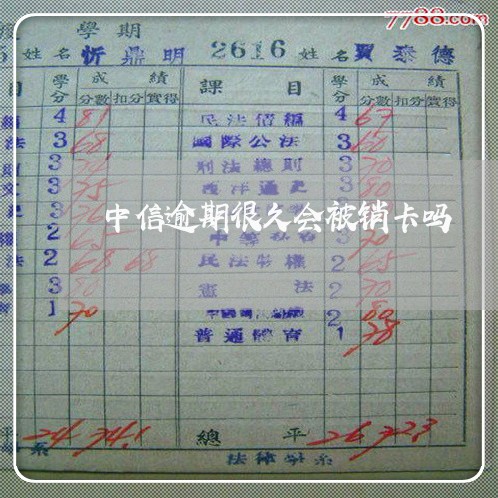 7788.com
學期
5 姓名 忻鼎明 2616 姓名 賈泰德
目 學分 成績 課目 學分 成績
分數 扣分 實得 分數 扣分 實得
4 81 民法債編 4 67
法 3 68 國際公法 3 60
3 刑法總則 3 70
3 75 西洋通史 3 80
3
中信逾期很久会被销卡吗
2 65 3 70
法 2 68 68 民法物權 2 65
3 80 憲法 2 70
1 70 2 80
普通體育 1 78
平 24 74.1 總平 26 72.3
系 法律學系